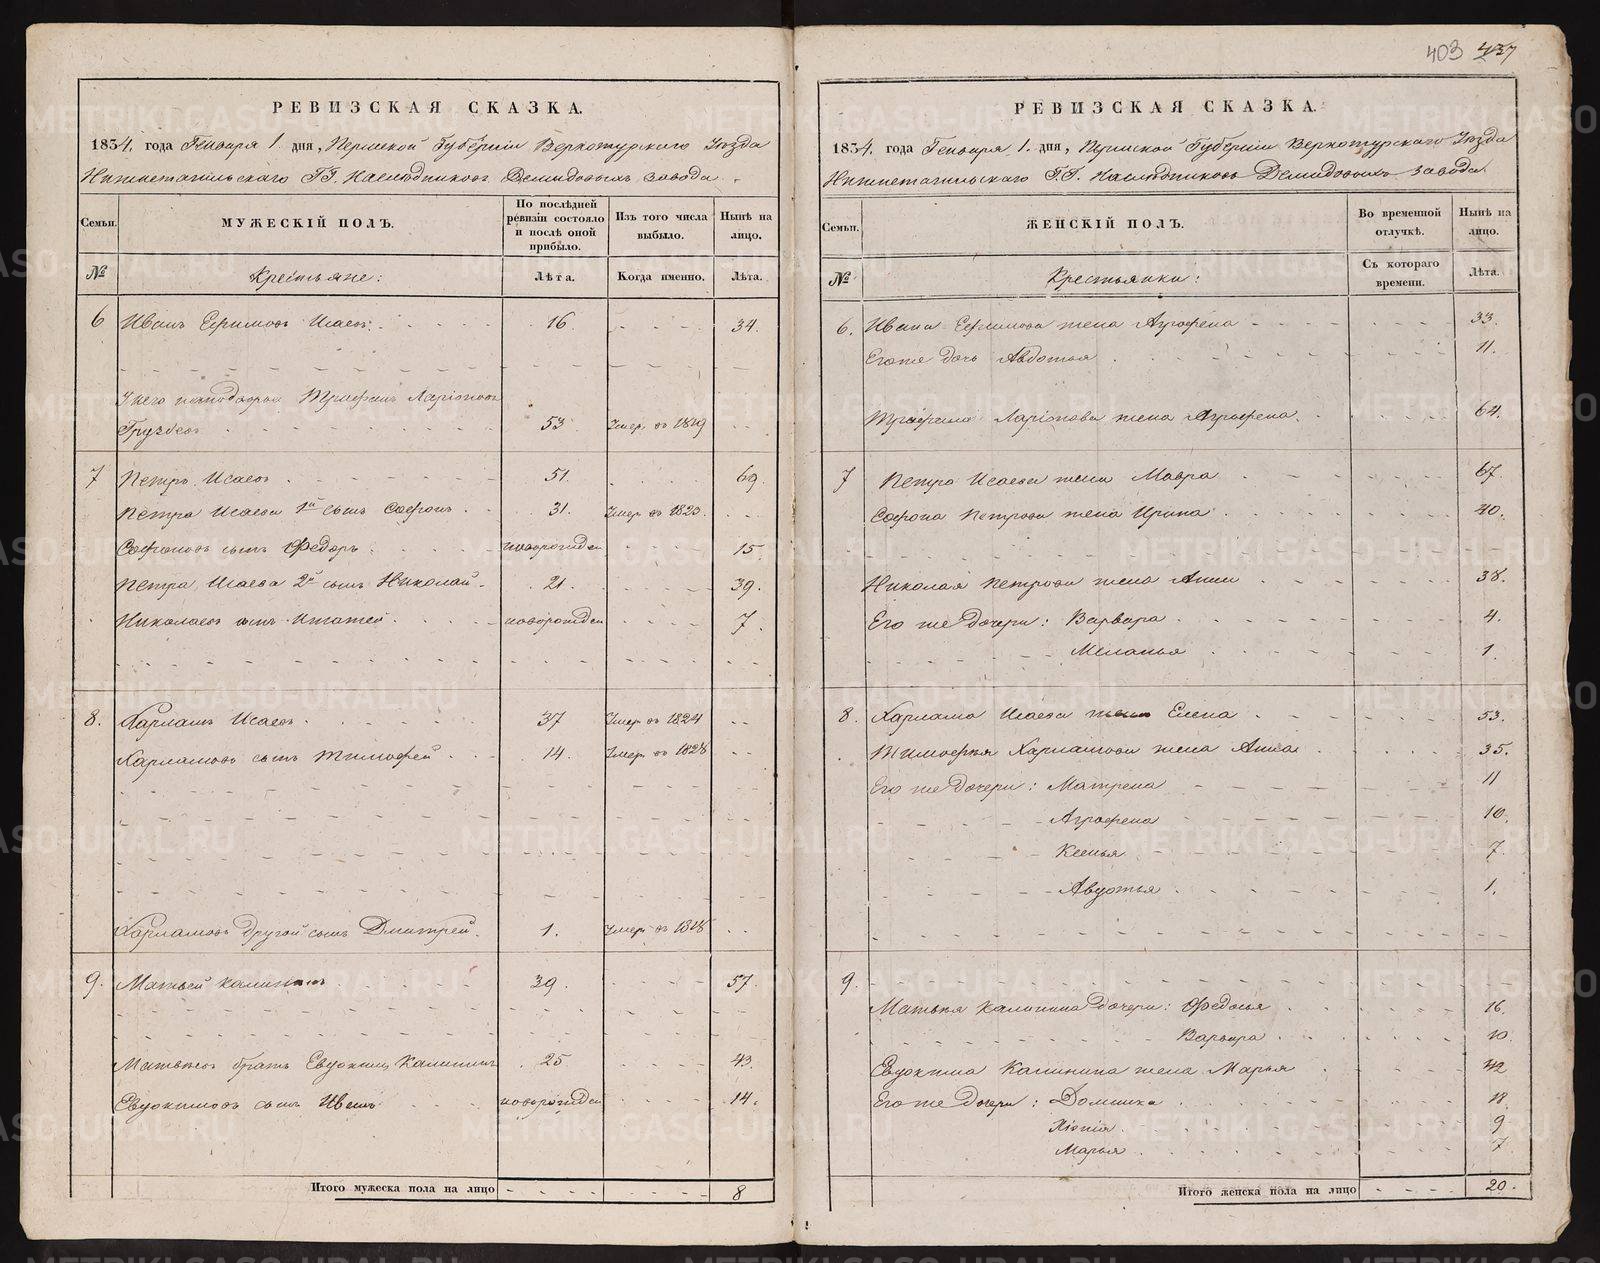 403 437
РЕВИЗСКАЯ СКАЗКА.
1834. года Генваря 1. дня, Пермской Губерніи Верхотурскаго Уѣзда
Нижнетагильскаго ГГ. Наслѣдниковъ Демидовыхъ завода.
Семьи. МУЖЕСКІЙ ПОЛЪ. По послѣдней ревизіи состояло и послѣ оной прибыло. Изъ того числа выбыло. Нынѣ на лицо.
№ Крестьяне: Лѣта. Когда именно. Лѣта.
6 Иванъ Ефимовъ Исаевъ. 16 34.
У него Трифанъ Ларіоновъ
Груздевъ 53 Умер. въ 1819
7 Петръ Исаевъ 51. 69.
Петра Исаева 1й сынъ Софронъ 31. Умер. въ 1823.
Софоновъ сынъ Федоръ новорожден 15
Петра Исаева 2й сынъ Николай 21. 39.
Николаевъ сынъ Игнатей новорожден 7.
8. Харламъ Исаевъ 37 Умер. въ 1824
Харламовъ сынъ Тимофей 14. Умер. въ 1828
Харламовъ другой сынъ Дмитрей. 1. Умер. въ 1818
9. Матвей Калининъ 39. 57.
Матвѣевъ братъ Евдокимъ Калининъ 25 43.
Евдокимовъ сынъ Иванъ новорожден 14.
Итого мужеска пола на лицо 8
РЕВИЗСКАЯ СКАЗКА.
1834. года Генваря 1. дня, Пермской Губерніи Верхотурскаго Уѣзда
Нижнетагильскаго Г.Г. Наслѣдниковъ Демидовыхъ завода.
Семьи. ЖЕНСКІЙ ПОЛЪ. Во временной отлучкѣ. Нынѣ на лицо.
№ Крестьянки: Съ котораго времени. Лѣта.
6. Ивана Ефимова жена Агрофена 33.
Его же дочь Авдотья 11.
Трифана Ларіонова жена Агрофена. 64.
7 Петра Исаева жена Мавра 67.
Софона Петрова жена Ирина 40.
Николая Петрова жена Анна 38.
Его же дочери: Варвара 4.
Меланья 1.
8. Харлама Исаева жена Елена 53.
Тимофея Харламова жена Анна 35.
Его же дочери: Матрена 11
Агрофена 10.
Ксенья 7.
Авдотья 1.
9.
Матвѣя Калинина дочери: Федосья 16.
Варвара 10.
Евдокима Калинина жена Марья 42
Его же дочери: Домника 18
Хіонія 9
Марья 7
Итого женска пола на лицо 20.
METRIKI.GASO-URAL.RU